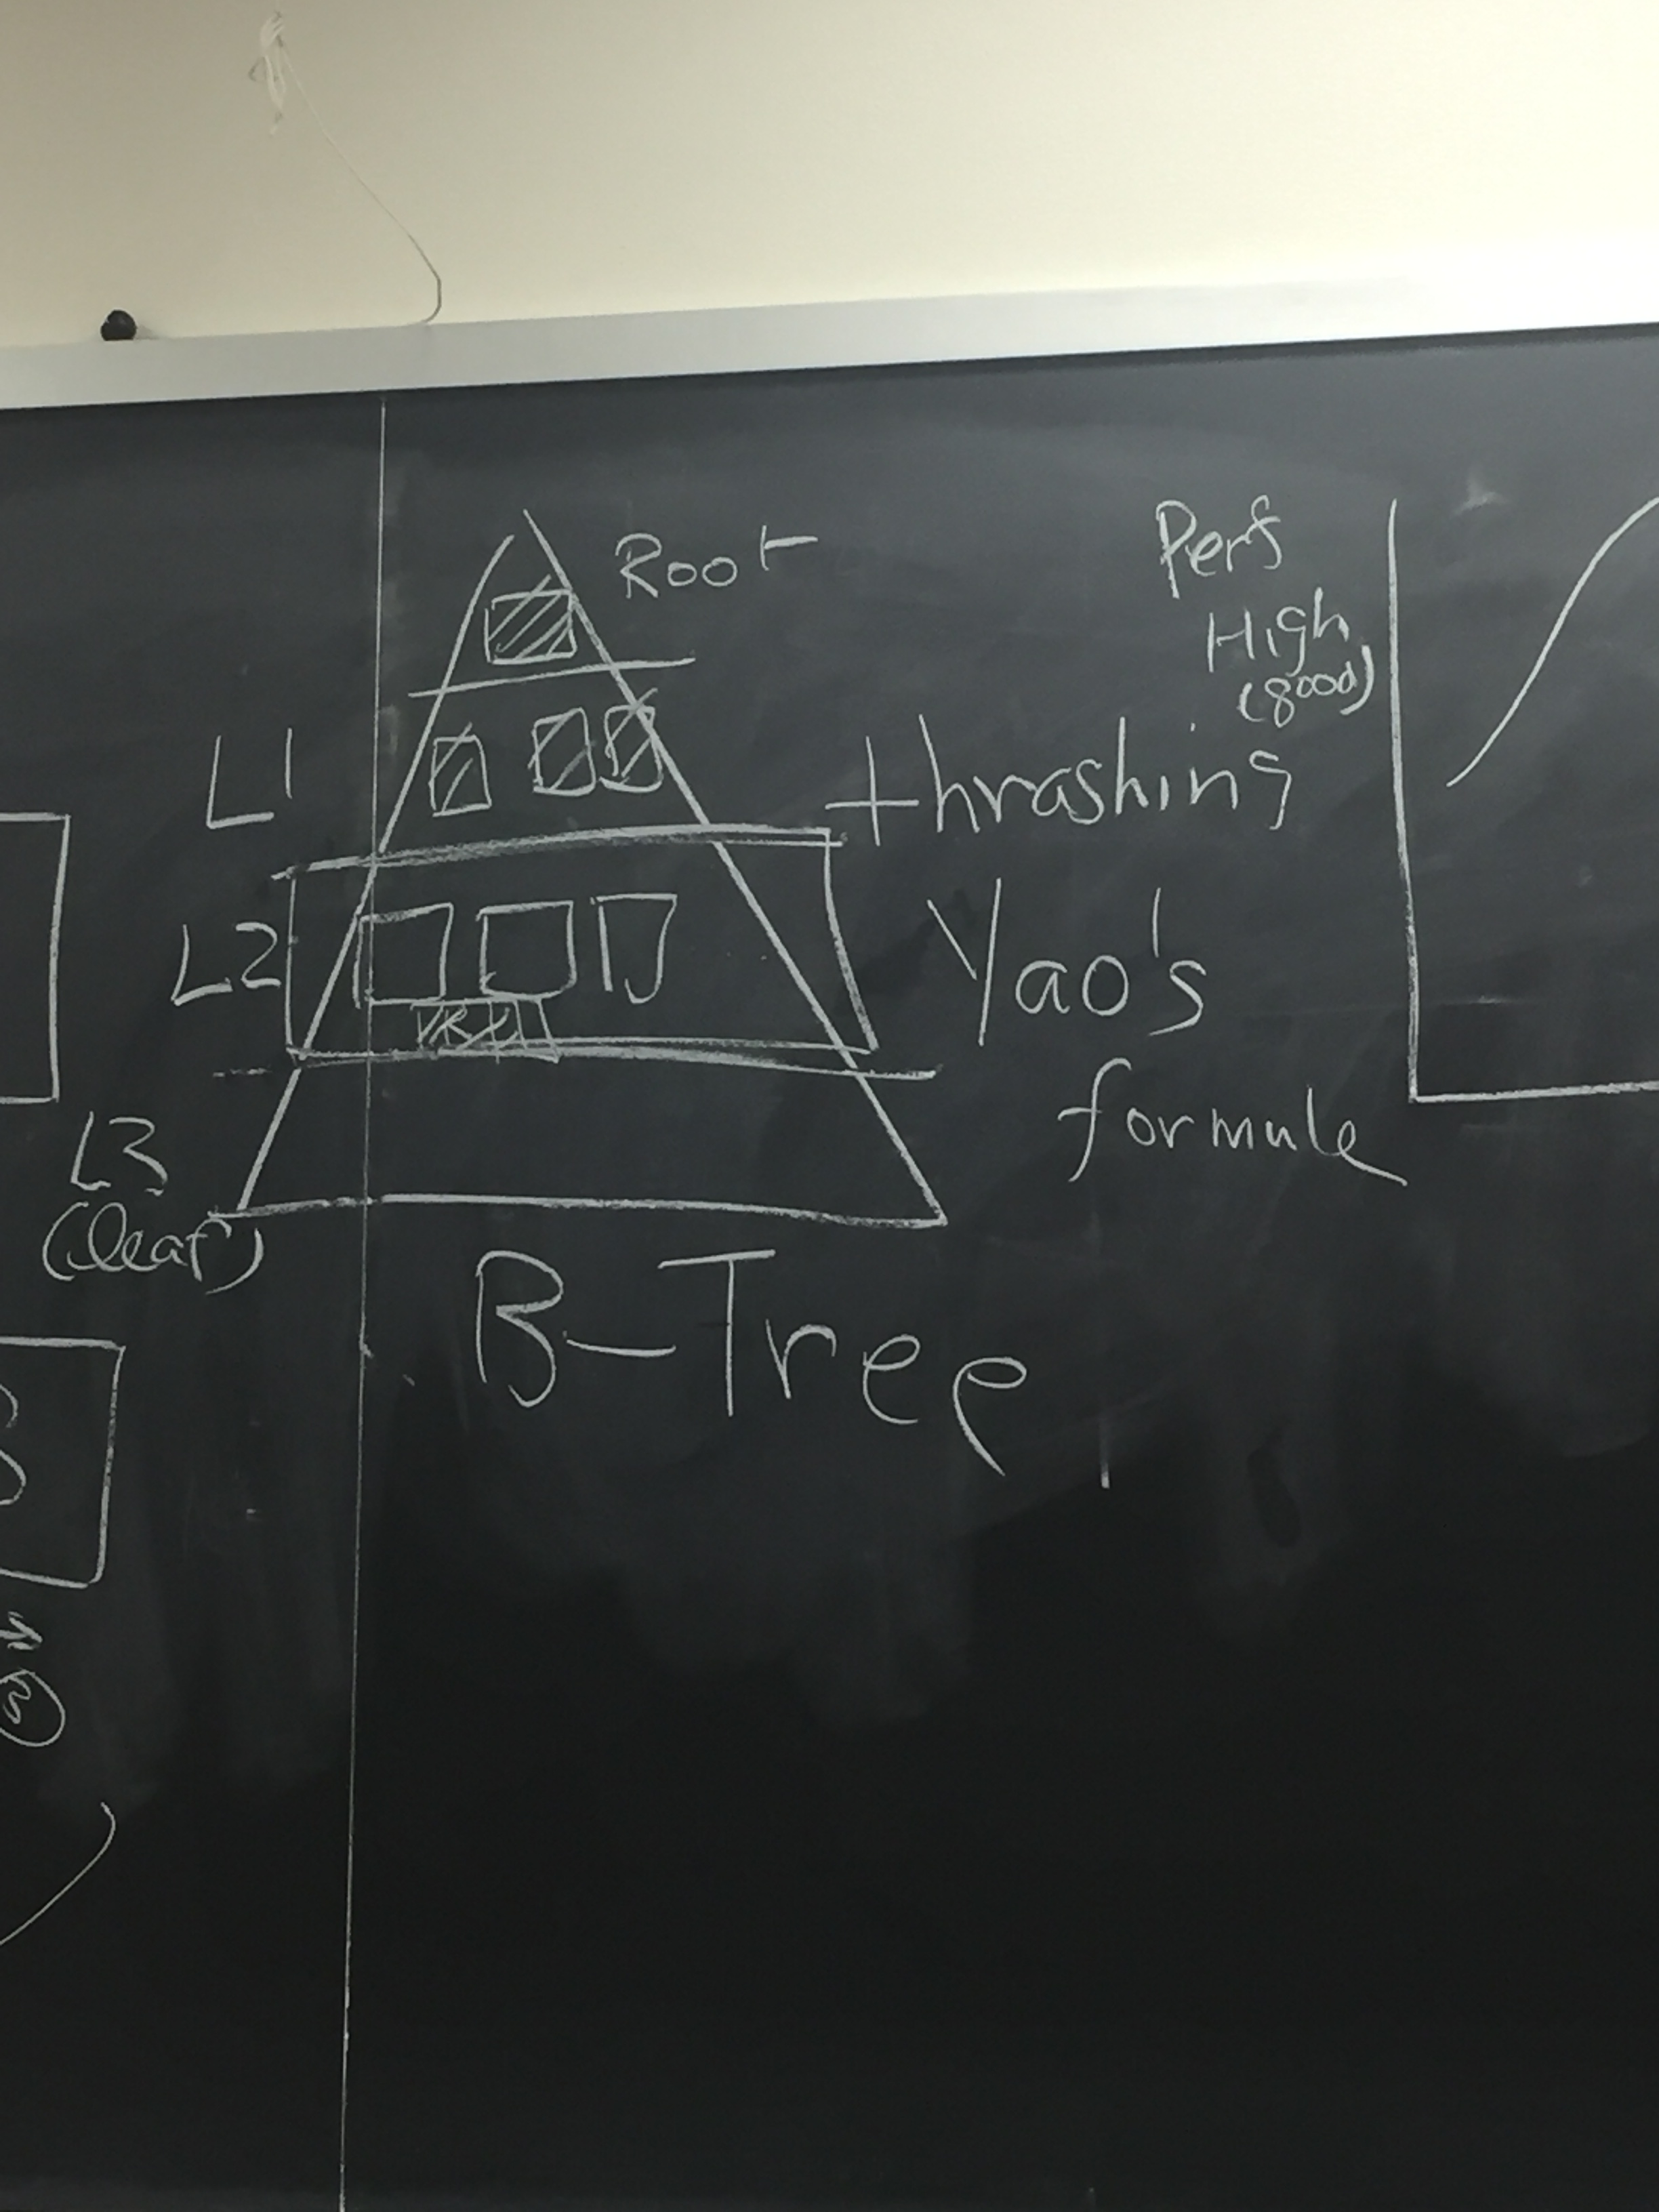 Root
L1
L2
L3
(leaf)
B-Tree
thrashing
Yao's
formule
Perf
High
(good)